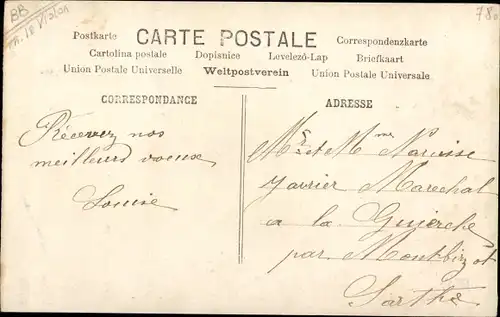 BB
780
Postkarte CARTE POSTALE Correspondenzkarte
Cartolina postale Dopisnice Levelező-Lap Briefkaart
Union Postale Universelle Weltpostverein Union Postale Universale
CORRESPONDANCE
ADRESSE
Recevez nos
meilleurs voeux
Louise
Mr et Mme Narcisse
Marechal
a la Guierche
par Montbizot
Sarthe